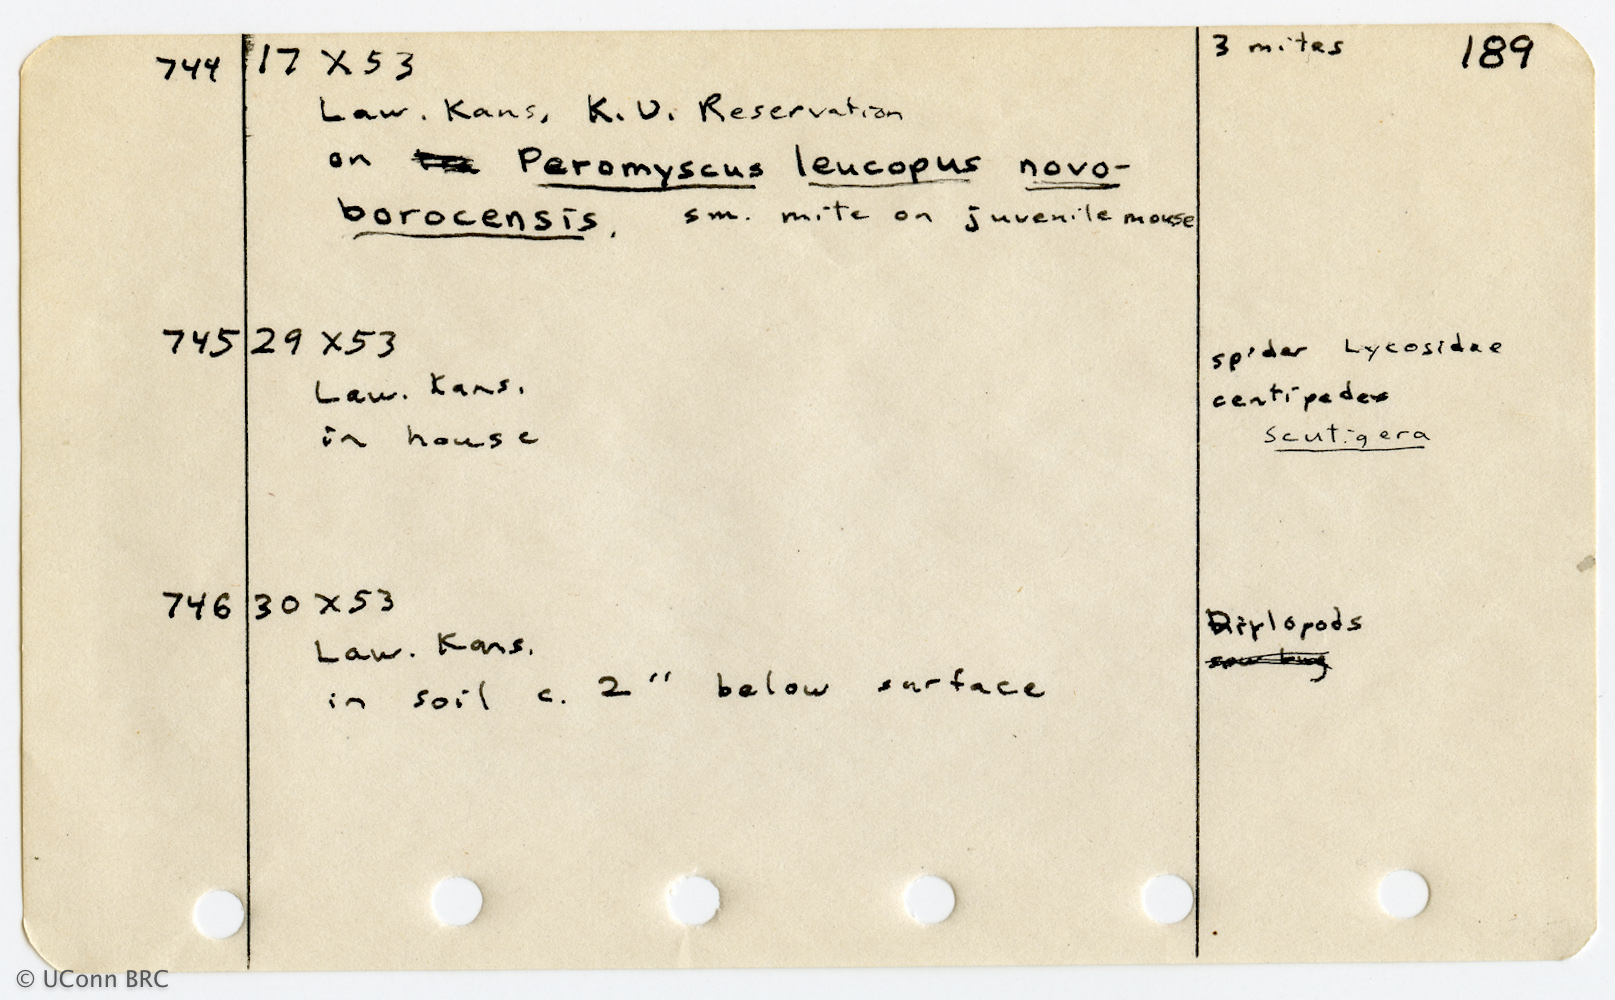 744 17 X 53 3 mites 189
Law. Kans, K.U. Reservation
on Peromyscus leucopus novo-
borocensis. sm. mite on juvenile mouse
745 29 X 53 spider Lycosidae
Law. Kans. centipedes
in house Scutigera
746 30 X 53 Diplopods
Law. Kans.
in soil c. 2" below surface
© UConn BRC